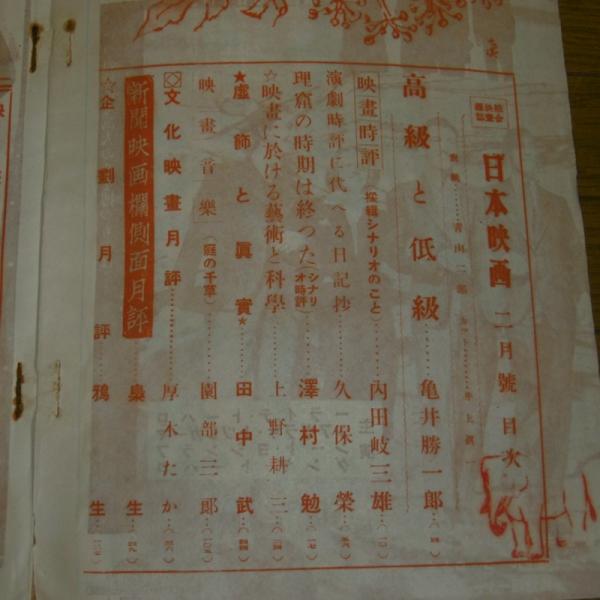 日本映画 二月號 目次
表紙… 青山二郎 カット…… 井上
高級と低級…… 亀井勝一郎
映畫時評(採輯シナリオのこと) 内田岐三雄
演劇時評に代へる日記抄…… 久保榮
理窟の時期は終つた(シナリオ時評) 澤村勉
☆映畫に於ける藝術と科學…… 上野耕三
★虚飾と眞實★…… 田中武
映畫音樂(庭の千草)…… 園部三郎
◇文化映畫月評…… 厚木たか
新聞映画欄側面月評 梟生
☆企劃月評 鴉生